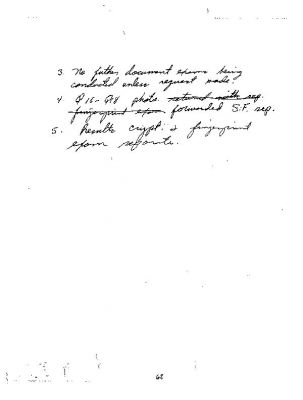 3. No further document exams being
conducted unless request made.
4. Q15-Q18 photo returned with sep.
fingerprint exam forwarded S.F. sep.
5. Results crypt. & fingerprint
exam separate.
62